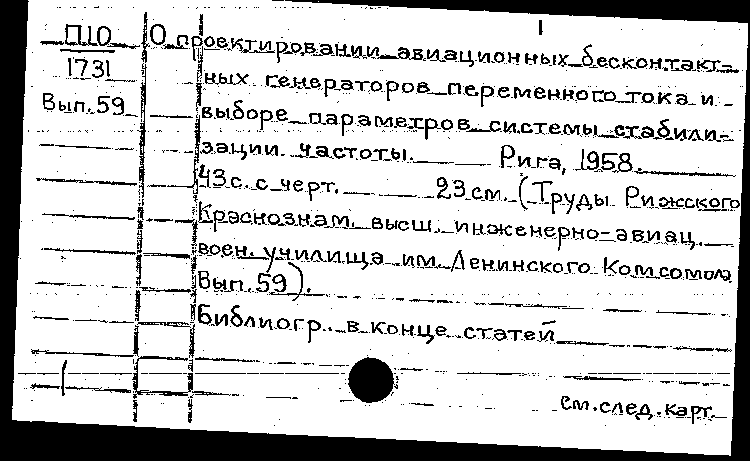 П10
1731
Вып.59
О проектировании авиационных бесконтакт-
ных генераторов переменного тока и
выборе параметров системы стабили-
зации частоты. Рига, 1958.
43с. с черт. 23см. (Труды Рижского
Краснознам. высш. инженерно-авиац.
воен. училища им. Ленинского Комсомола
Вып.59).
Библиогр. в конце статей
см.след.карт.